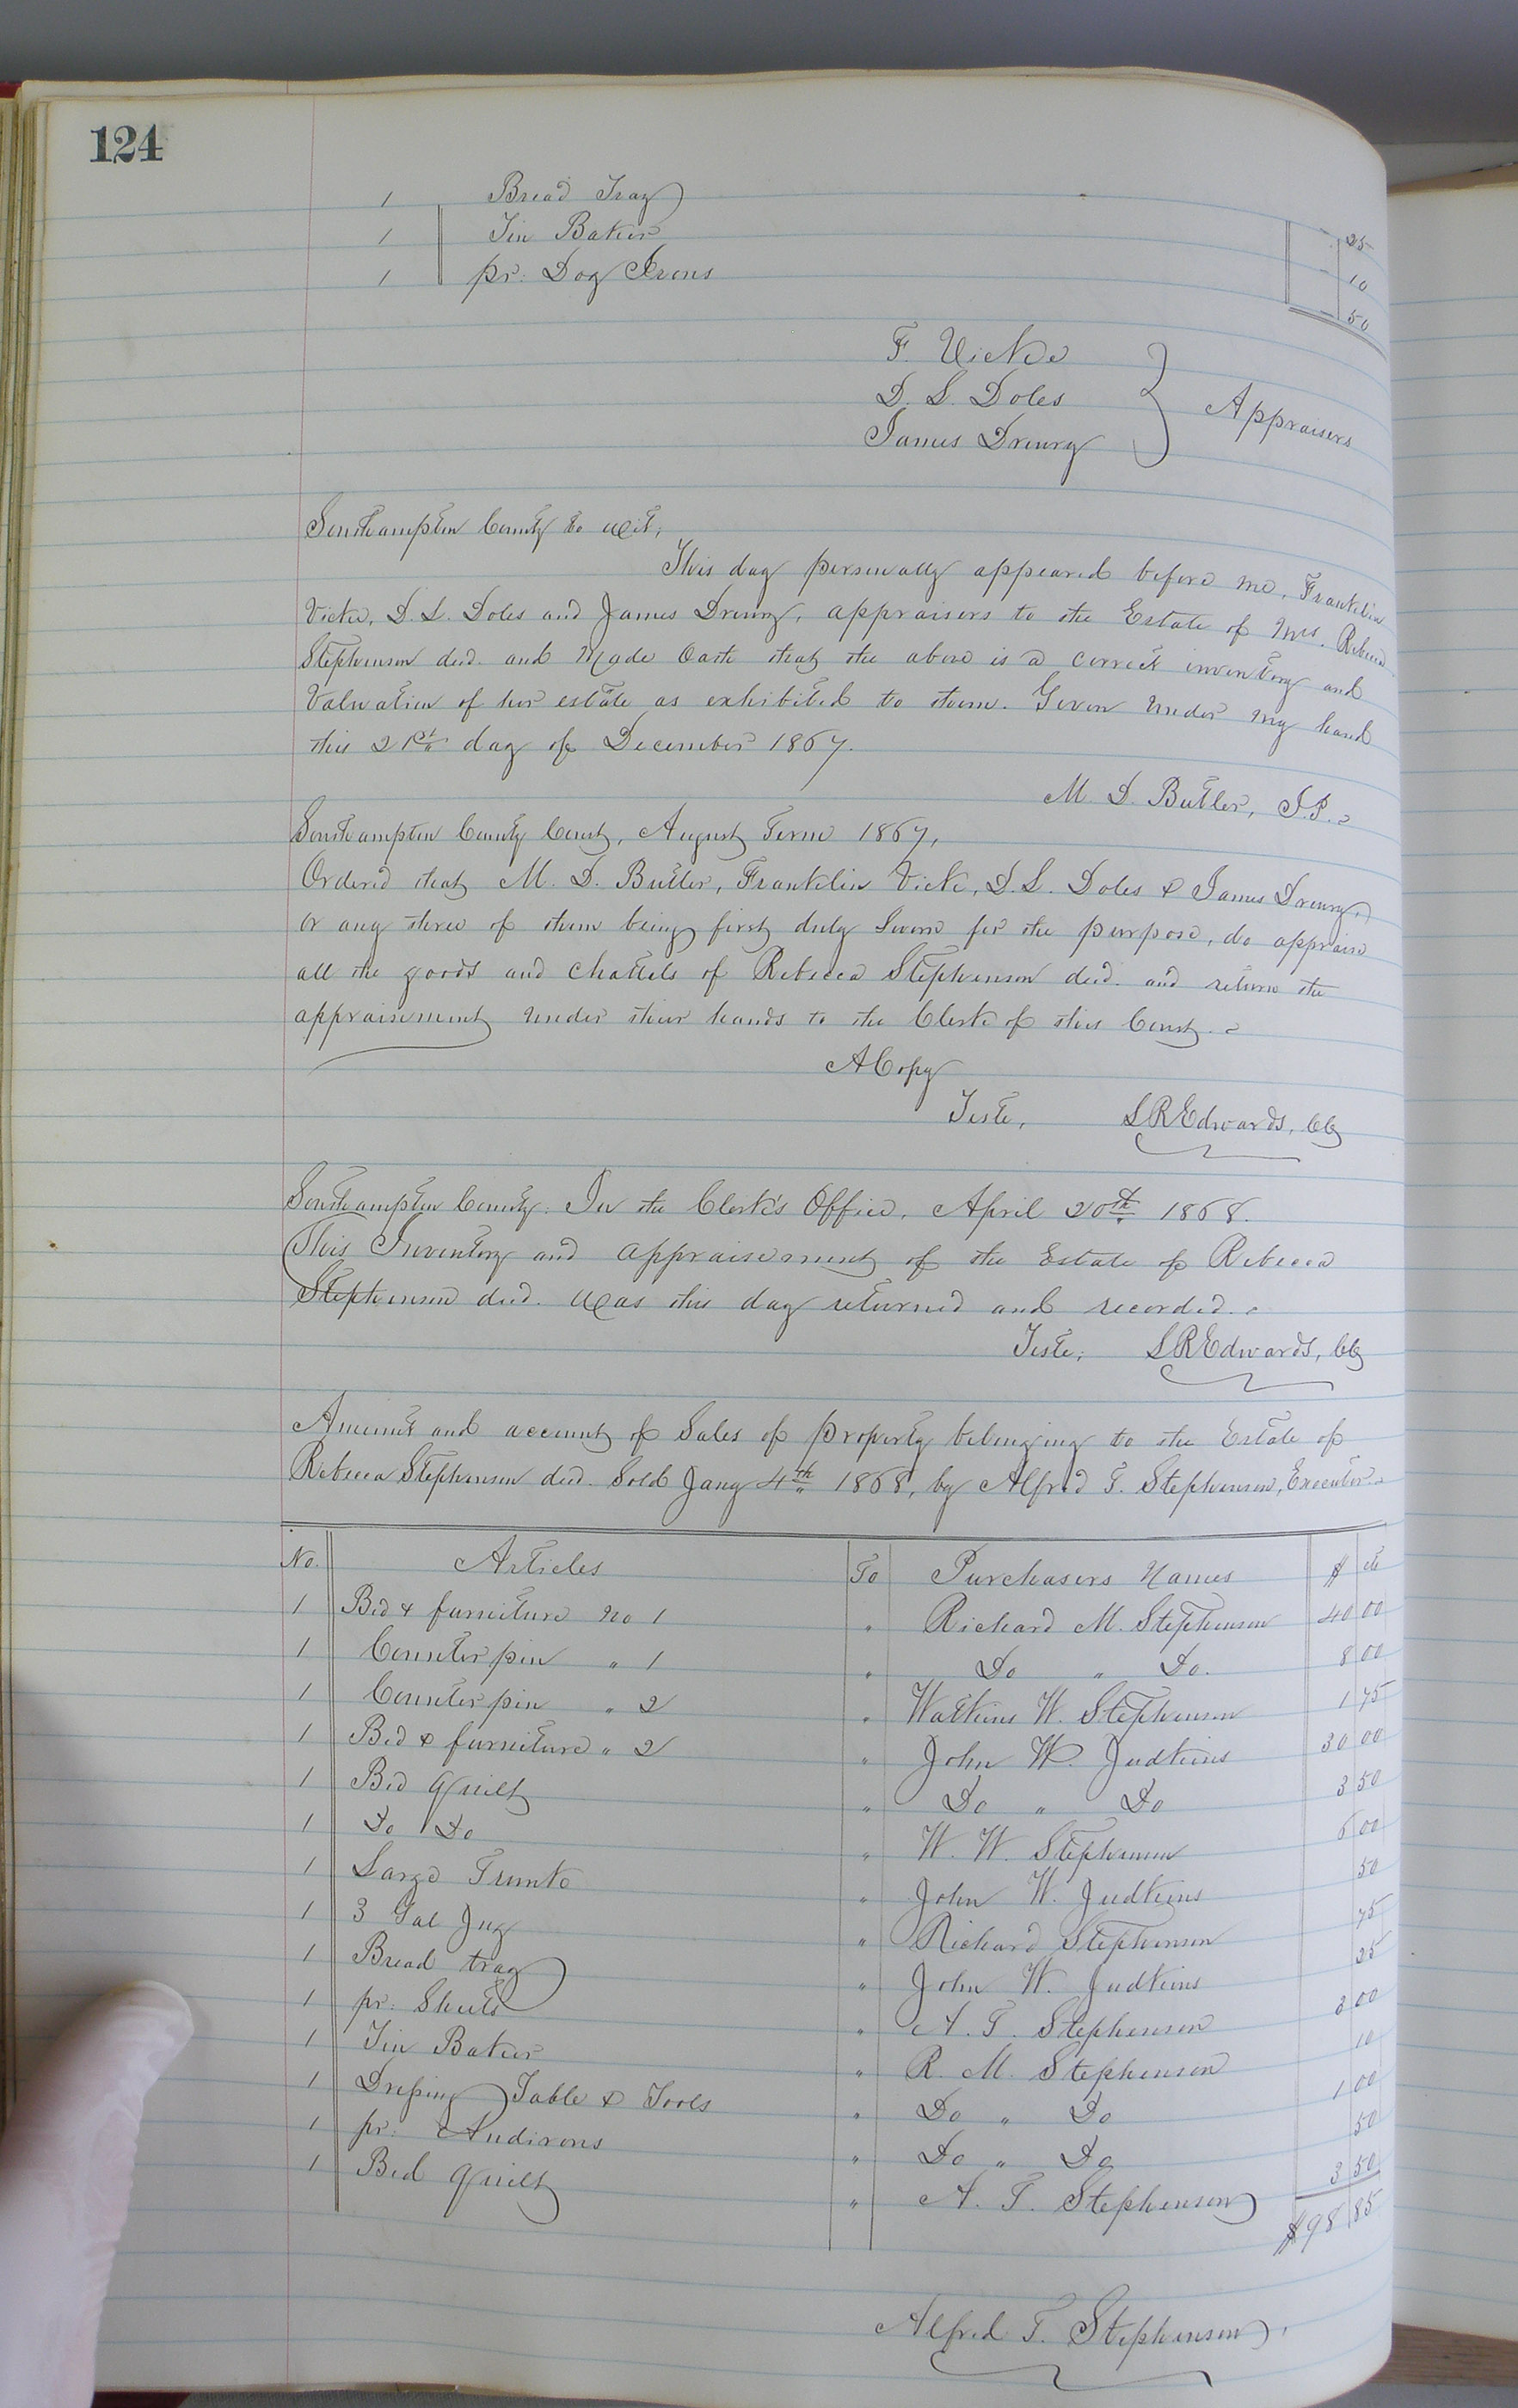 124
1 Bread Tray 25
1 Tin Baker 10
1 pr. Dog Irons 50
F. Vick
D. S. Doles
James Drewry
} Appraisers
Southampton County to wit;
This day personally appeared before me, Franklin
Vick, D. S. Doles and James Drewry, appraisers to the Estate of Mrs. Rebecca
Stephenson decd. and made Oath that the above is a correct inventory and
Valuation of her estate as exhibited to them. Given under my hand
this 21st day of December 1867.
M. D. Butler, J.P.
Southampton County Court, August Term 1867,
Ordered that M. D. Butler, Franklin Vick, D. S. Doles & James Drewry,
or any three of them being first duly Sworn for the purpose, do appraise
all the goods and Chattels of Rebecca Stephenson decd. and return the
appraisement under their hands to the Clerk of this Court.
A Copy
Teste, L R Edwards, CC
Southampton County: In the Clerk's Office, April 20th 1868.
This Inventory and appraisement of the Estate of Rebecca
Stephenson decd. was this day returned and recorded.
Teste; L R Edwards, CC
Amount and account of Sales of Property belonging to the Estate of
Rebecca Stephenson decd. Sold Jany 4th 1868, by Alfred T. Stephenson, Executor.
No. Articles To Purchasers Names $ cts
1 Bed & furniture no 1 " Richard M. Stephenson 40 00
1 Counterpin " 1 " Do " Do. 8 00
1 Counterpin " 2 " Watkins W. Stephenson 1 75
1 Bed & furniture " 2 " John W. Judkins 30 00
1 Bed Quilt " Do " Do 3 50
1 Do Do " W. W. Stephenson 6 00
1 Large Trunk " John W. Judkins 50
1 3 Gal Jug " Richard Stephenson 75
1 Bread tray " John W. Judkins 25
1 pr. Sheets " A. T. Stephenson 3 00
1 Tin Baker " R. M. Stephenson 10
1 Dressing Table & Tools " Do " Do 1 00
1 pr. Andirons " Do " Do 50
1 Bed Quilt " A. T. Stephenson 3 50
$98 85
Alfred T. Stephenson